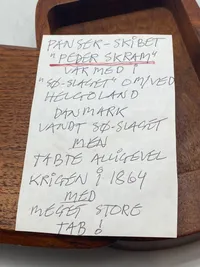 PANSER-SKIBET
"PEDER SKRAM"
VAR MED I
"SØ-SLAGET" OM/VED
HELGOLAND
DANMARK
VANDT SØ-SLAGET
MEN
TABTE ALLIGEVEL
KRIGEN I 1864
MED
MEGET STORE
TAB!